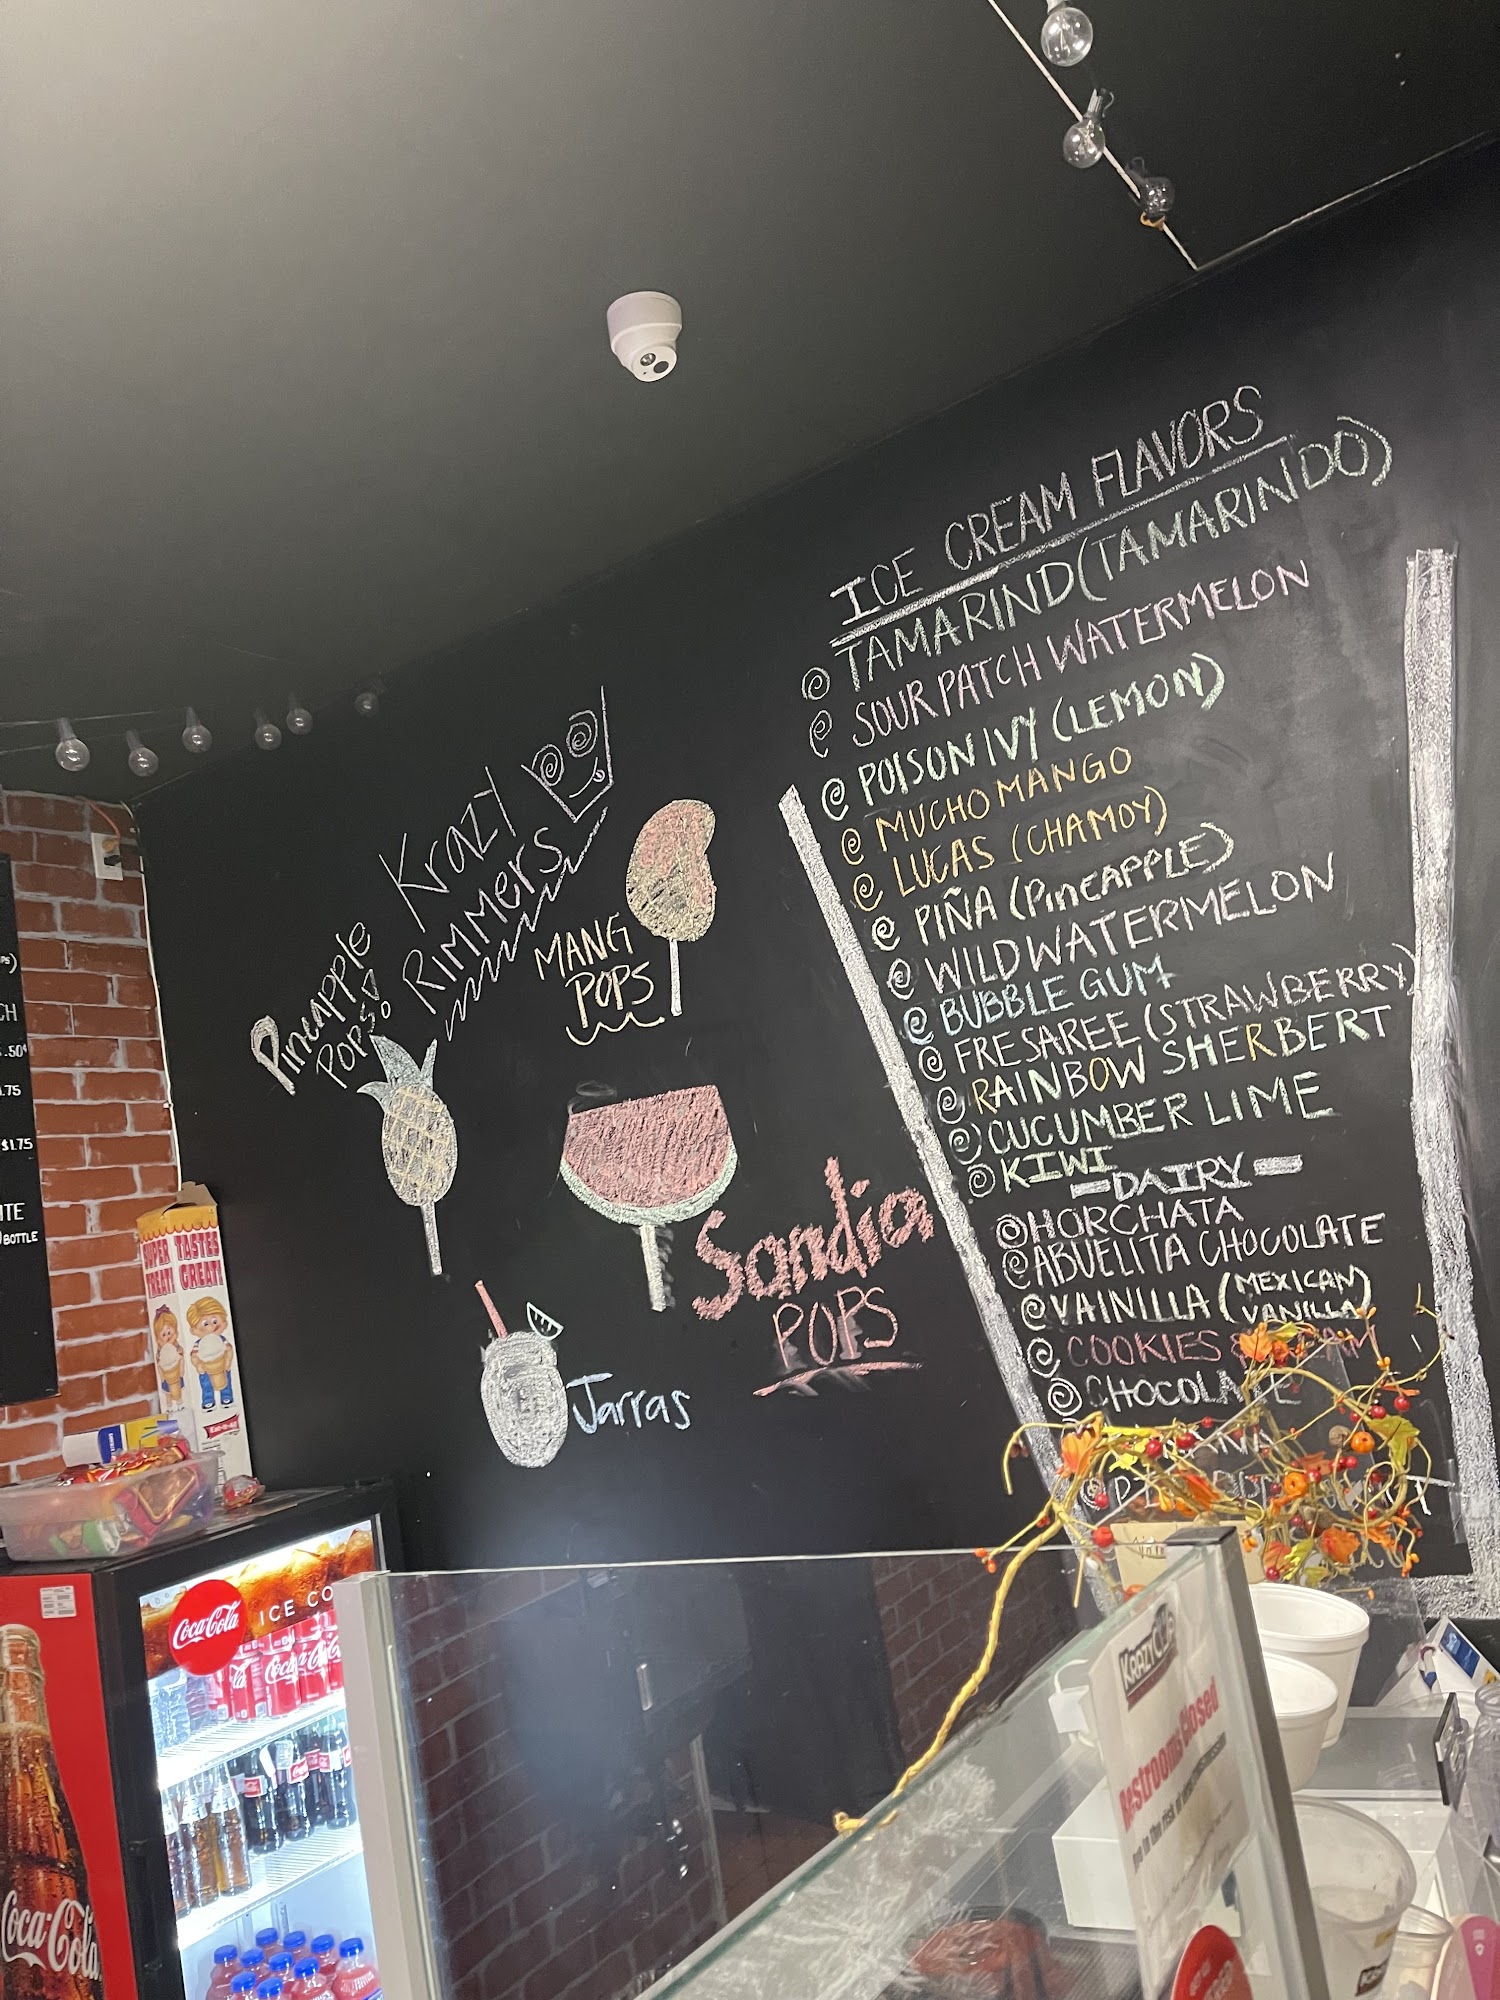 ICE CREAM FLAVORS
TAMARIND (TAMARINDO)
SOUR PATCH WATERMELON
POISON IVY (LEMON)
MUCHO MANGO
LUCAS (CHAMOY)
PIÑA (PineAPPLE)
WILD WATERMELON
BUBBLE GUM
FRESAREE (STRAWBERRY)
RAINBOW SHERBERT
CUCUMBER LIME
KIWI
DAIRY
HORCHATA
ABUELITA CHOCOLATE
VAINILLA (MEXICAN
VANILLA)
COOKIES
CHOCOLATE
KrAZY
RIMMerS
MANG
POPS
Pineapple
POPS!
Sandia
POPS
Jarras
.50¢
.75
$1.75
BOTTLE
SUPER TASTES
TREAT! GREAT!
Eat-it-all
Coca-Cola
ICE CO
Coca-Cola
KRAZY CUP
Restrooms Closed